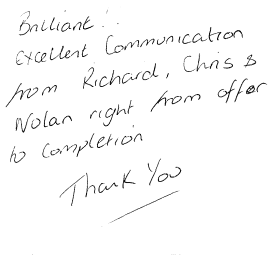 Brilliant!
Excellent Communication
from Richard, Chris &
Nolan right from offer
to completion
Thank You